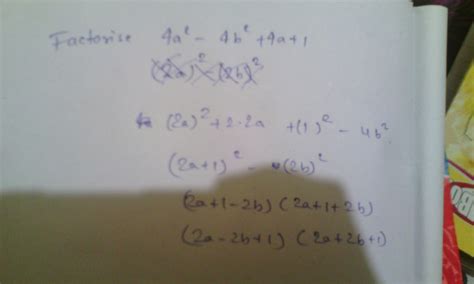 Factorise 4a² - 4b² + 4a + 1
(2a)² - (2b)²
(2a)² + 2·2a + (1)² - 4b²
(2a+1)² - (2b)²
(2a+1-2b) (2a+1+2b)
(2a-2b+1) (2a+2b+1)